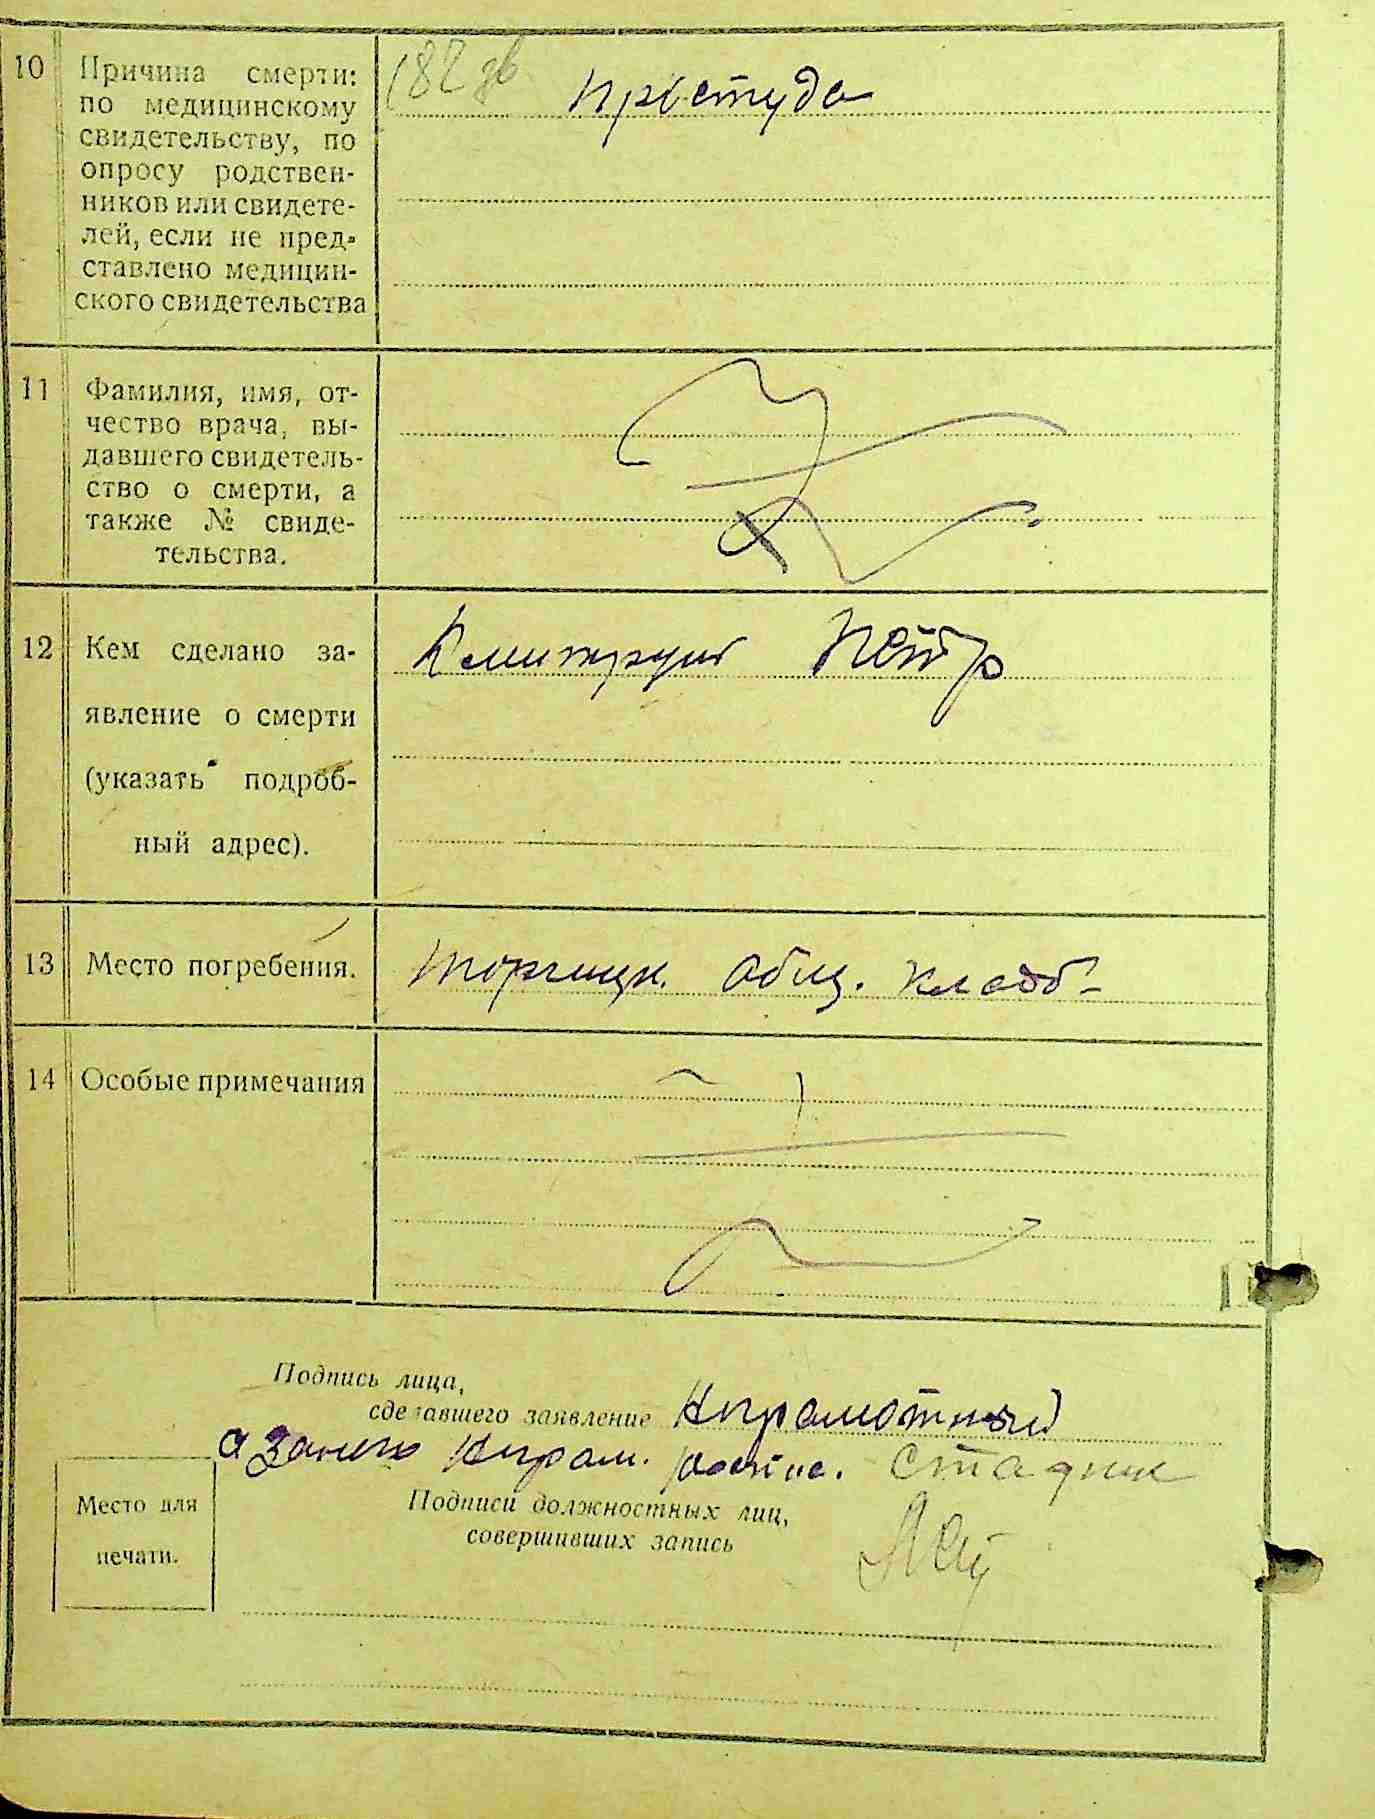 10 Причина смерти:
по медицинскому
свидетельству, по
опросу родствен-
ников или свидете-
лей, если не пред-
ставлено медицин-
ского свидетельства
простуда
11 Фамилия, имя, от-
чество врача, вы-
давшего свидетель-
ство о смерти, а
также № свиде-
тельства.
12 Кем сделано за-
явление о смерти
(указать подроб-
ный адрес).
Петр
13 Место погребения. общ. кладб-
14 Особые примечания
Подпись лица,
сделавшего заявление
Стадник
Подписи должностных лиц,
совершивших запись
Место для
печати.